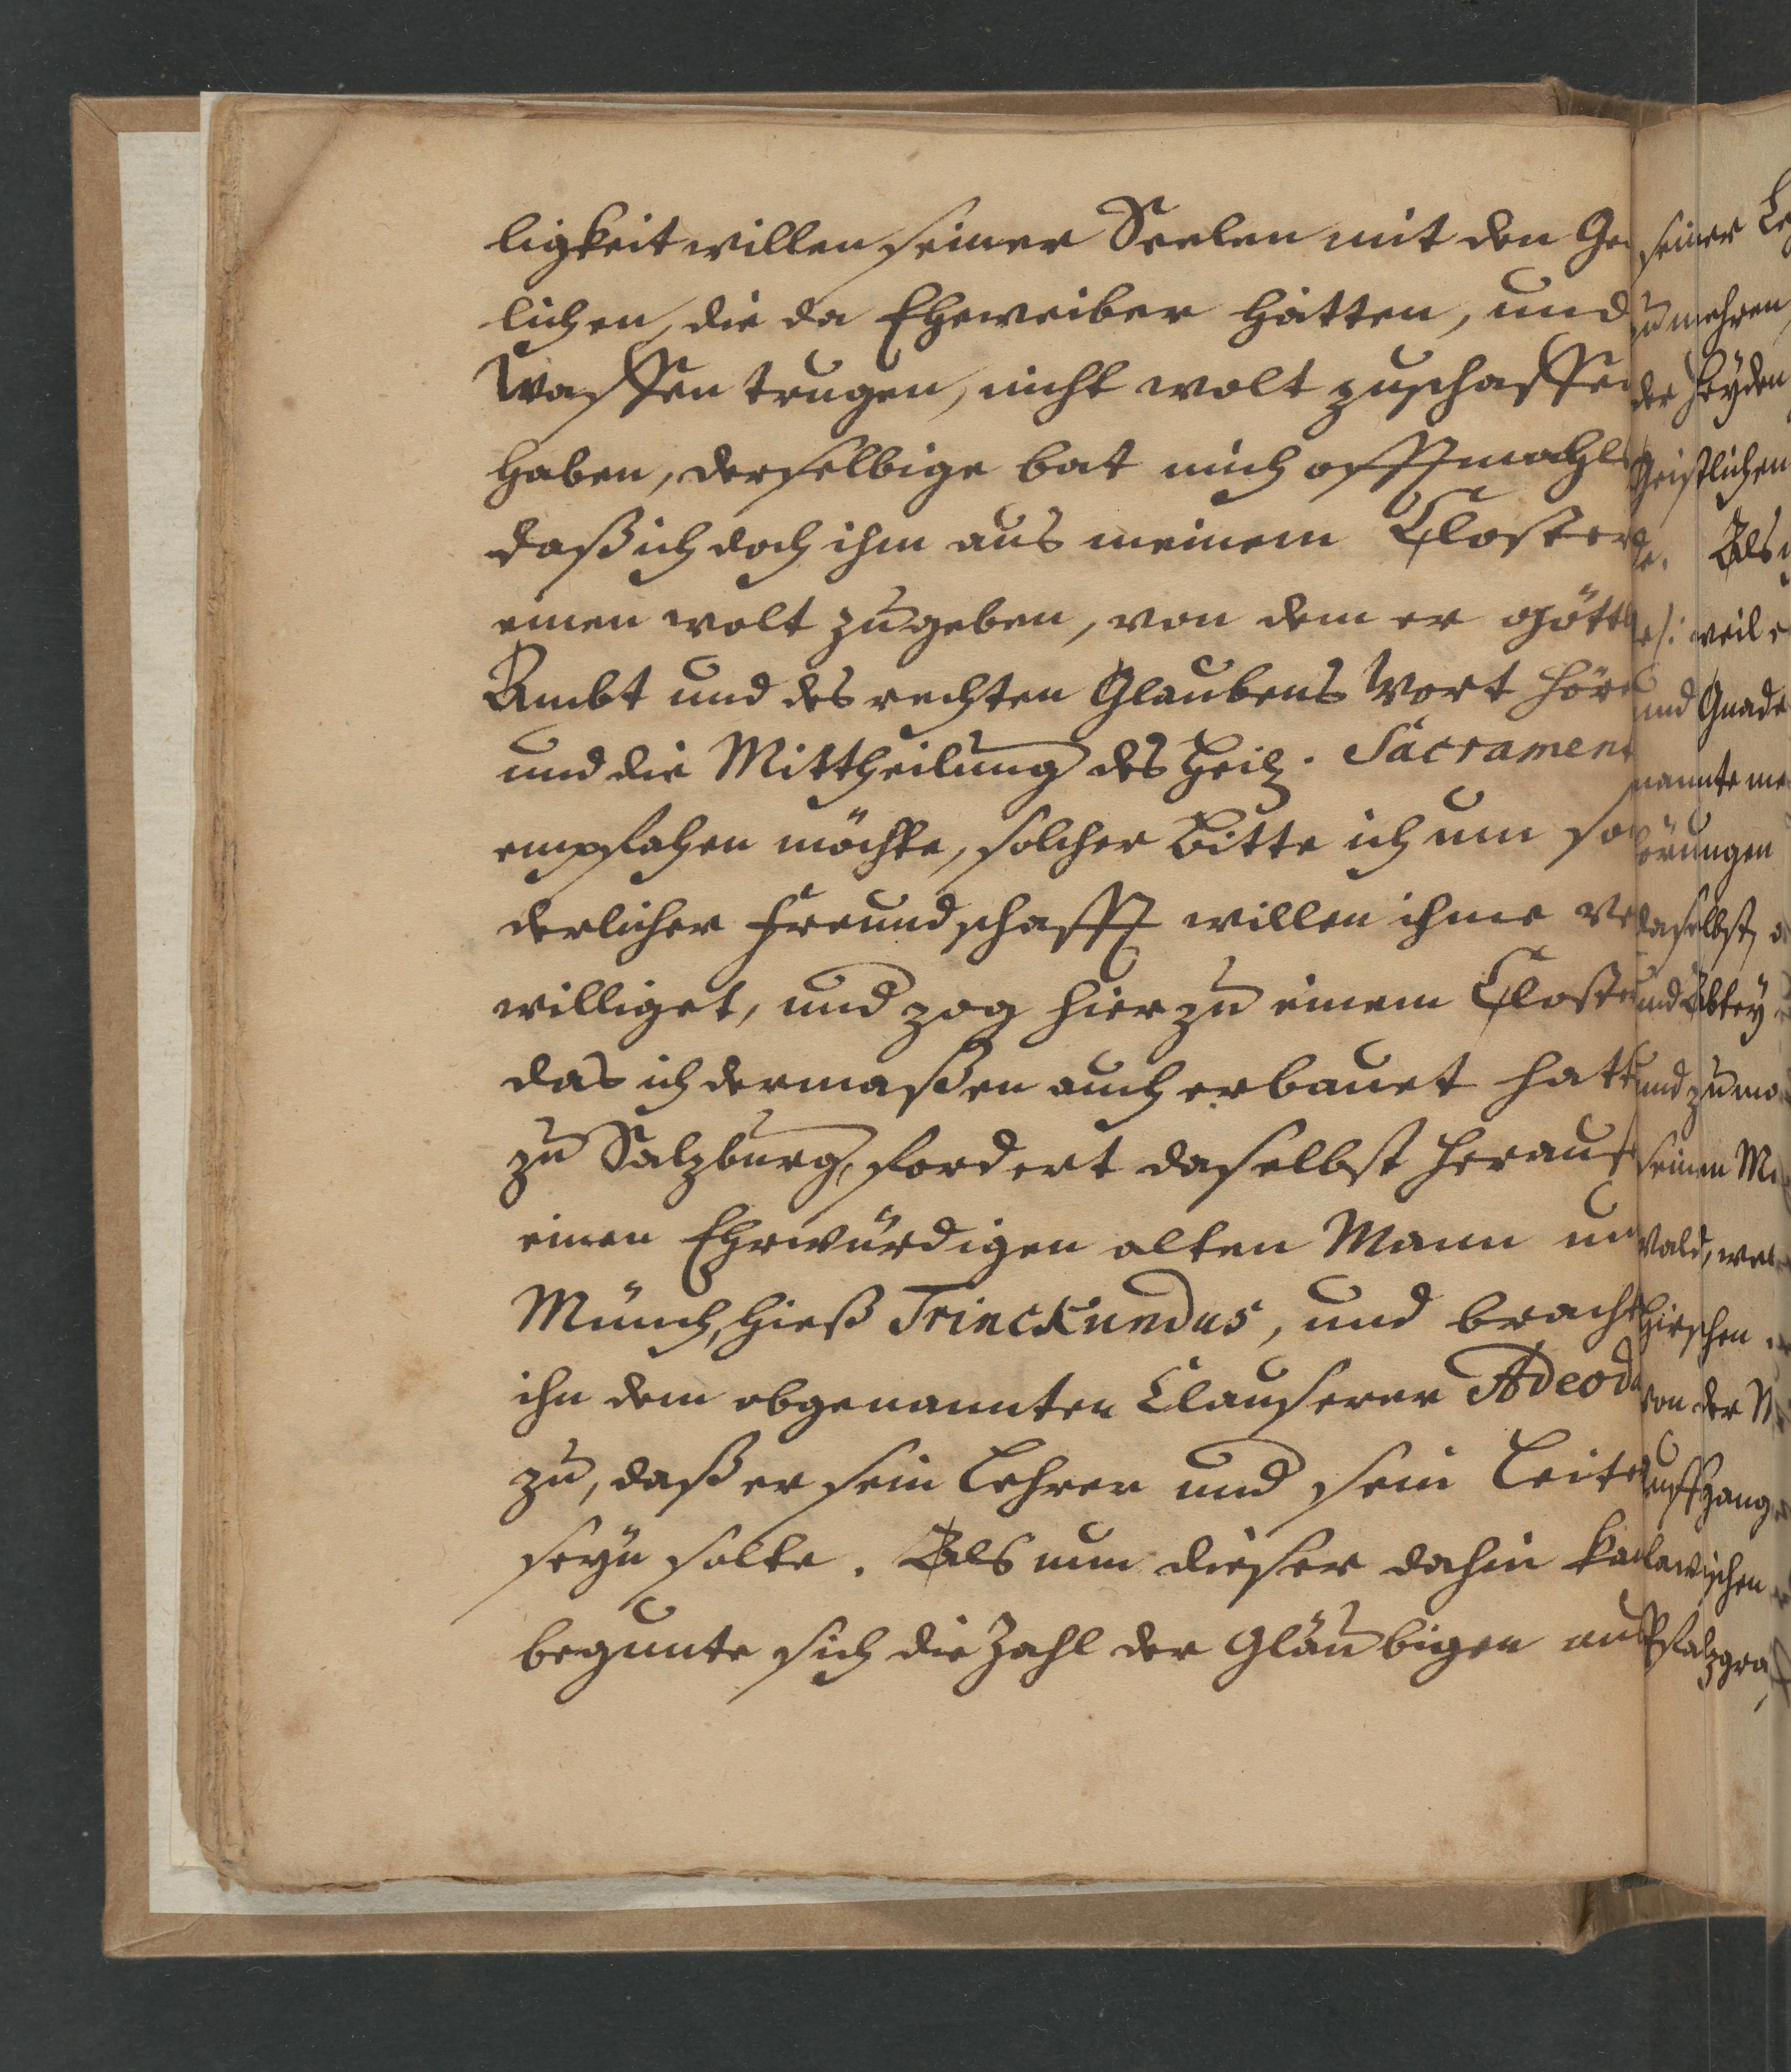 ligkeit willen seiner Seelen mit den Ge
lichen, die da Eheweiber hätten, und
Waffen trugen, nicht wolt zuschaffen
haben, derselbige bat mich offtmahls
daß ich doch ihm aus meinem Closter
einen wolt zugeben, von dem er göttl
Ambt und des rechten Glaubens Wort höre
und die Mittheilung des Heil. Sacrament
empfahen möchte, solcher Bitte ich um so
derlicher Freundschafft willen ihme ve
williget, und zog hier zu einem Closte
das ich dermaßen auch erbauet hatte
zu Saltzburg, fordert daselbst heraus
einen Ehrwürdigen alten Mann un
Münch, hieß Trinckundus, und bracht
ihn dem obgenannten Clauserer Adeod
zu, daß er sein Lehrer und sein Leiter
seyn solte. Als nun dieser dahin kam
begunte sich die Zahl der Gläubigen aus
seiner
zu mehren
der Heyden
Geistlichen
Als
weil
und Gnade
nannte
daselbst
und Abtey
und zu
seinem
Wald,
Hirschen
von der
auffgang
Pfalzgra